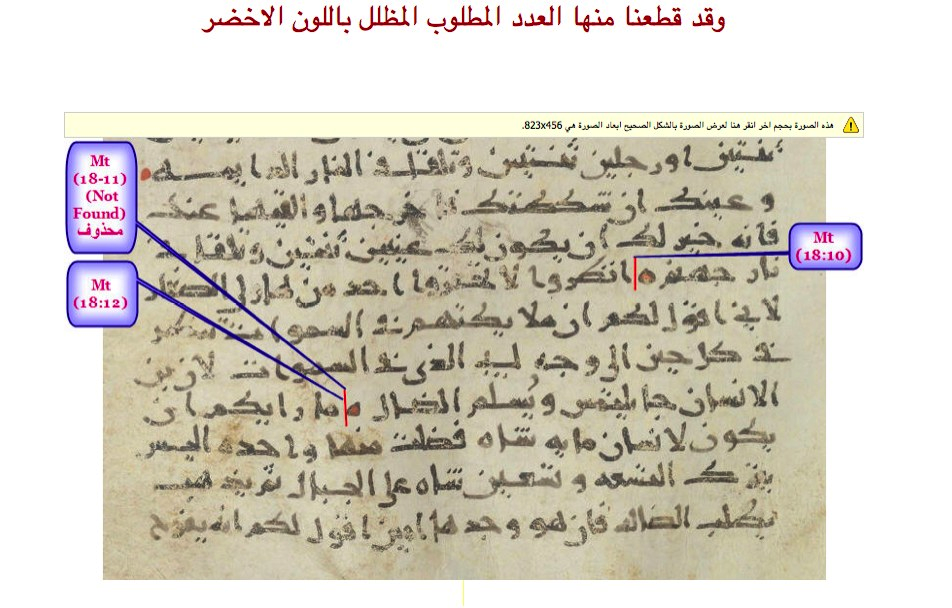 وقد قطعنا منها العدد المطلوب المظلل باللون الاخضر
هذه الصورة بحجم اخر انقر هنا لعرض الصورة بالشكل الصحيح ابعاد الصورة هي 823x456.
Mt
(18-11)
(Not
Found)
محذوف
Mt
(18:10)
Mt
(18:12)
ثنتين او رجلين ثنتين وتلقا في النار الدايمه
وعينك ان شككتك عنك
فانه خير لك ان يكون لك عينين ثنتين وتلقا في
نار جهنم انظروا لا تحتقروا احد من هاولي الصغار
لاني اقول لكم ان ملايكتهم في السموات تنظر
في كل حين الى وجه الذي في السموات لان بن
الانسان جا يلتمس ويسلم الضال ما رايكم ان
يكون لانسان مايه شاه فضلت منها واحده اليس
يترك التسعه و تسعين شاه على الجبال
يطلب الضاله فان هو وجدها امين اقول لكم انه يفرح